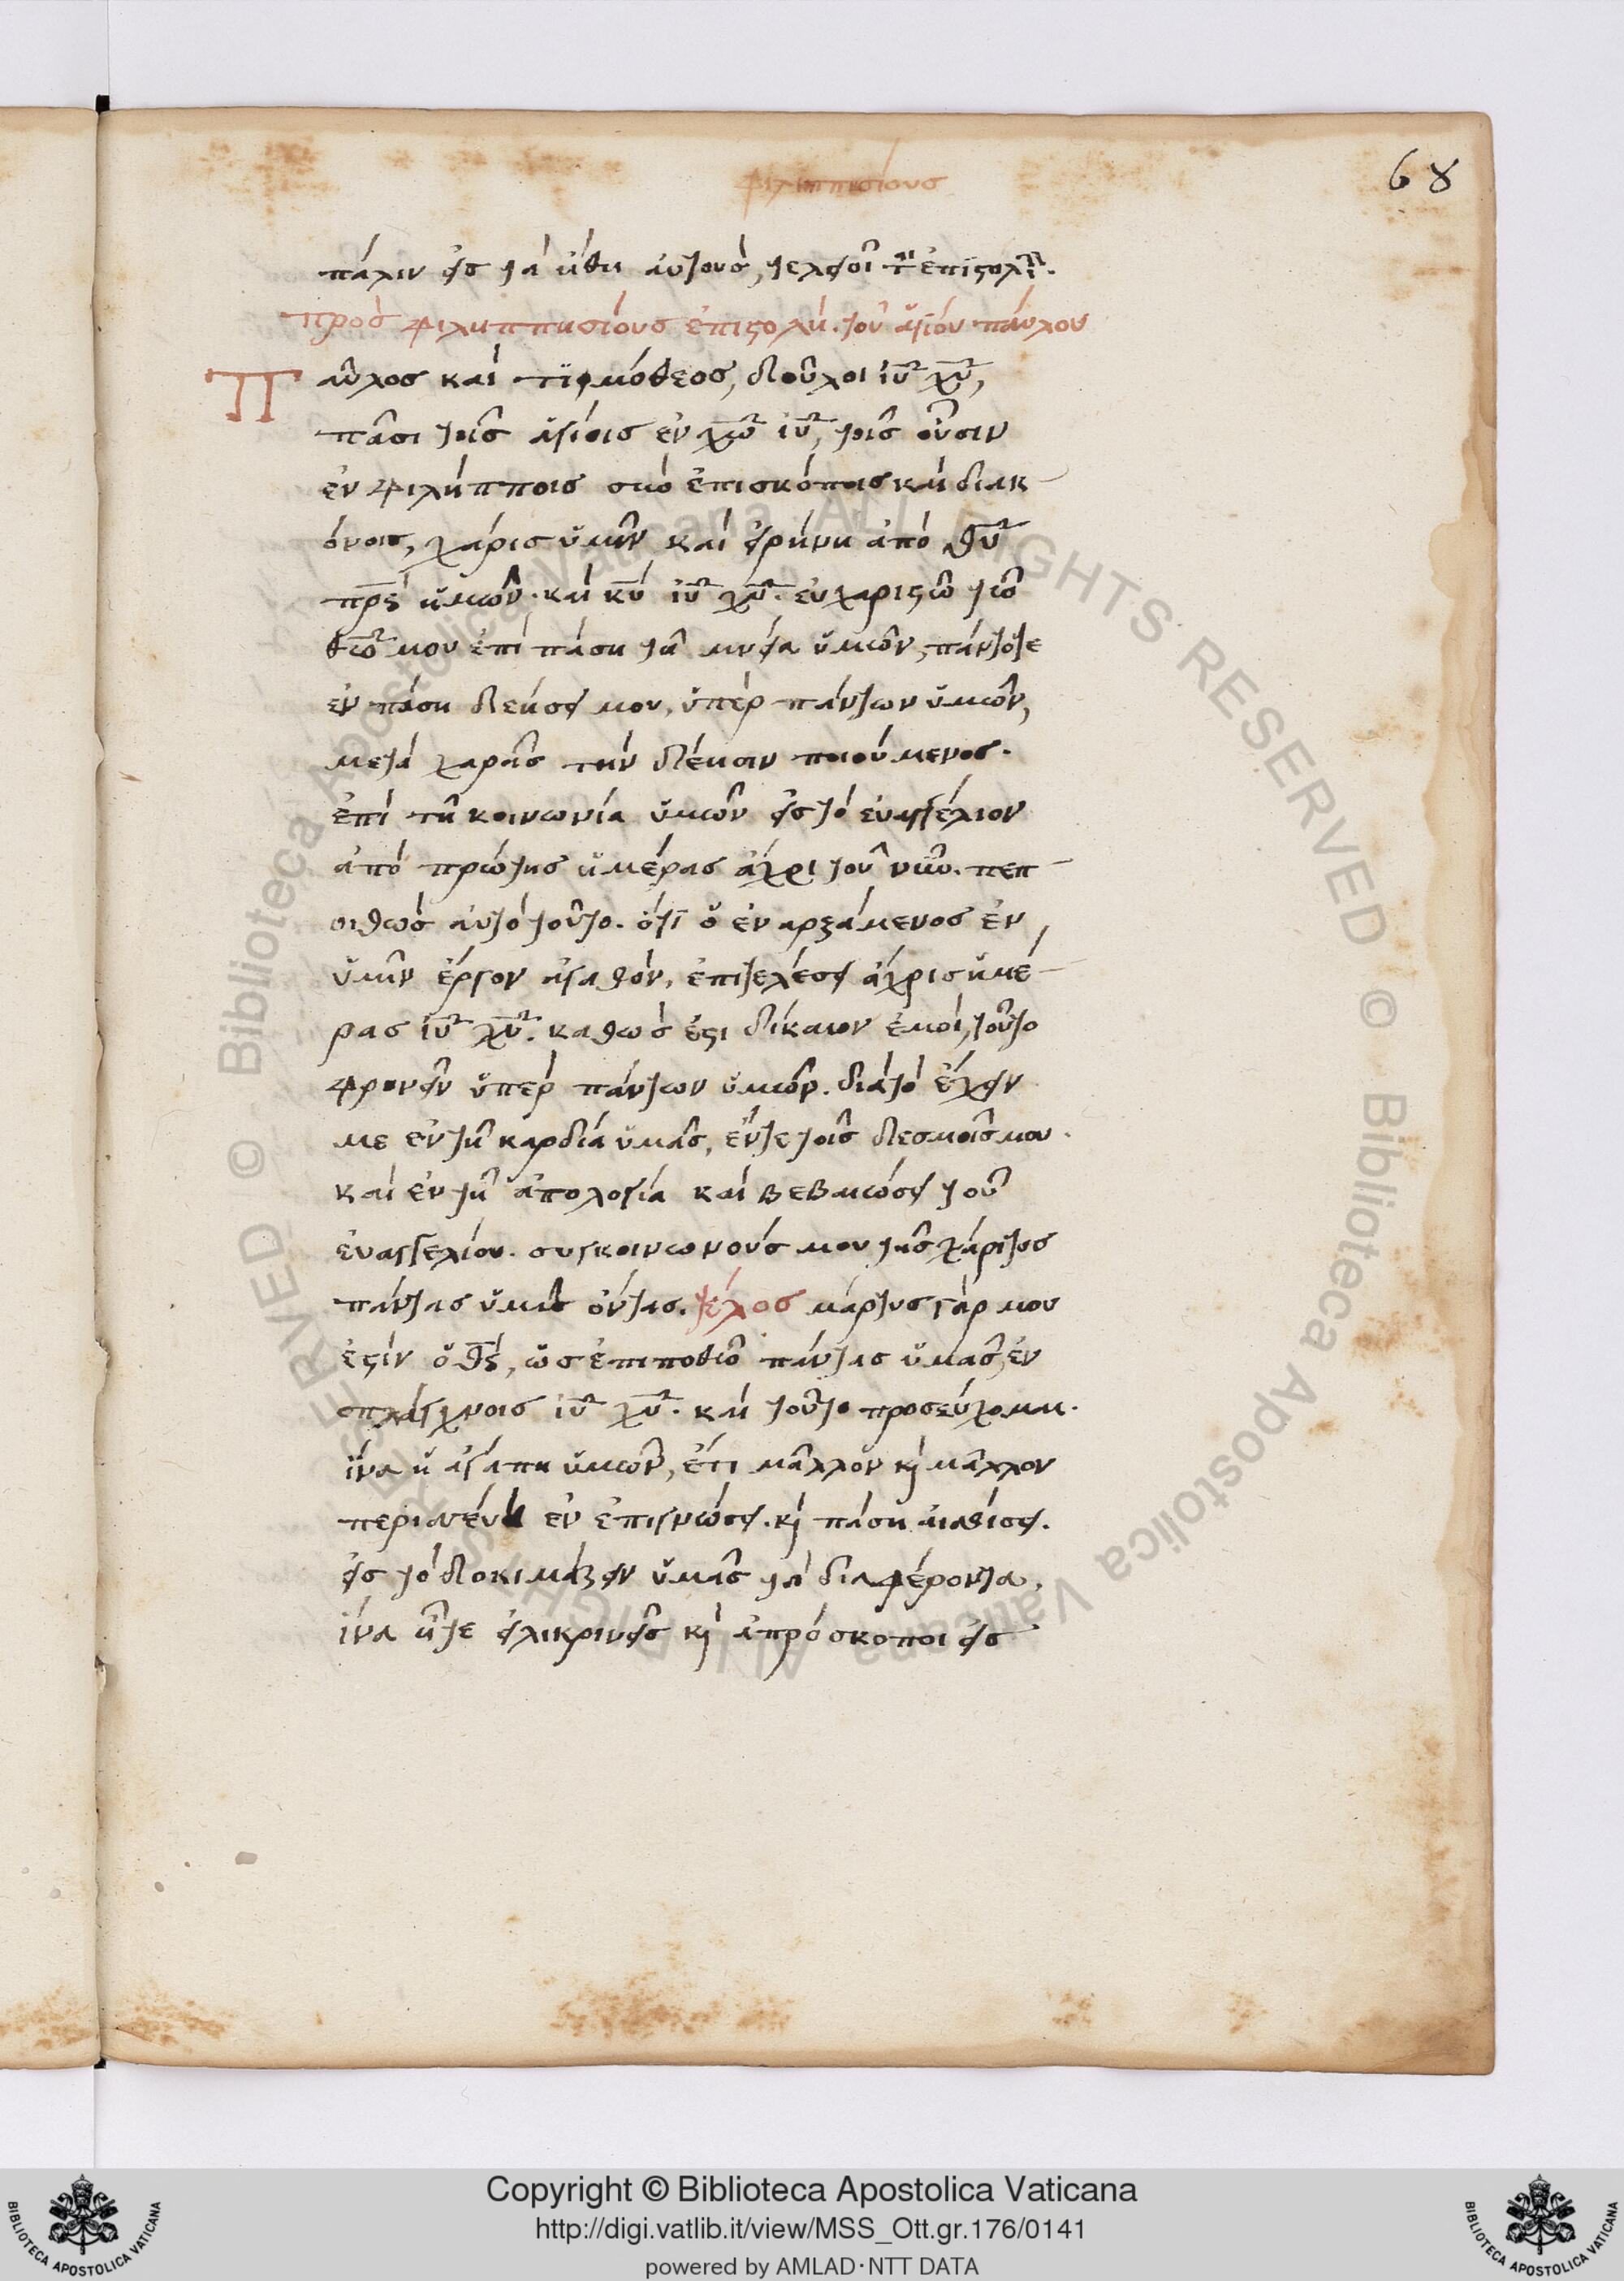 φιλιππισίους
68
πάλιν εἰς τὰ ἤθη αὐτοὺς, τελφοῖ τ ἐπιστολ.
προς φιλιππισίους ἐπιστολή. τοῦ ἁγίου παύλου
Παῦλος καὶ τιμόθεος, δοῦλοι ἰυ χυ,
πᾶσι τοῖς ἁγίοις ἐν χω ἰυ, τοῖς οὖσιν
ἐν φιλήπποις σὺν ἐπισκόποις καὶ διακ
όνοις, χάρις ὑμῖν καὶ εἰρήνη ἀπὸ θυ
πρς ἡμῶν. καὶ κυ ἰυ χυ. εὐχαριστῶ τῶ
θω μου ἐπὶ πάση τῆ μνεία ὑμῶν, πάντοτε
ἐν πάση δεήσει μου, ὑπὲρ πάντων ὑμῶν,
μετὰ χαρᾶς τὴν δέησιν ποιούμενος.
ἐπὶ τῆ κοινωνία ὑμῶν εἰς τὸ εὐαγγέλιον
ἀπὸ πρώτης ἡμέρας ἄχρι τοῦ νῦν. πεπ
οιθὼς αὐτὸ τοῦτο. ὅτι ὁ ἐναρξάμενος ἐν
ὑμῖν ἔργον ἀγαθὸν, ἐπιτελέσει ἄχρις ἡμέ
ρας ἰυ χυ. καθὼς ἐστι δίκαιον ἐμοὶ, τοῦτο
φρονεῖν ὑπὲρ πάντων ὑμῶν. διὰ τὸ ἔχειν
με ἐν τῆ καρδία ὑμᾶς, ἔν τε τοῖς δεσμοῖς μου.
καὶ ἐν τῆ ἀπολογία καὶ βεβαιώσει τοῦ
εὐαγγελίου. συγκοινωνούς μου τῆς χάριτος
πάντας ὑμᾶς ὄντας. τέλος μάρτυς γάρ μου
ἐστὶν ὁ θς, ὡς ἐπιποθῶ πάντας ὑμᾶς, ἐν
σπλάγχνοις ἰυ χυ. καὶ τοῦτο προσεύχομαι.
ἵνα ἡ ἀγάπη ὑμῶν, ἔτι μᾶλλον κ μᾶλλον
ἐν ἐπιγνώσει. κ πάση αἰσθίσει.
εἰς τὸ δοκιμάζειν ὑμᾶς τὰ διαφέροντα,
ἵνα ἦτε εἰλικρινεῖς κ ἀπρόσκοποι εἰς
Copyright © Biblioteca Apostolica Vaticana
http://digi.vatlib.it/view/MSS_Ott.gr.176/0141
powered by AMLAD·NTT DATA